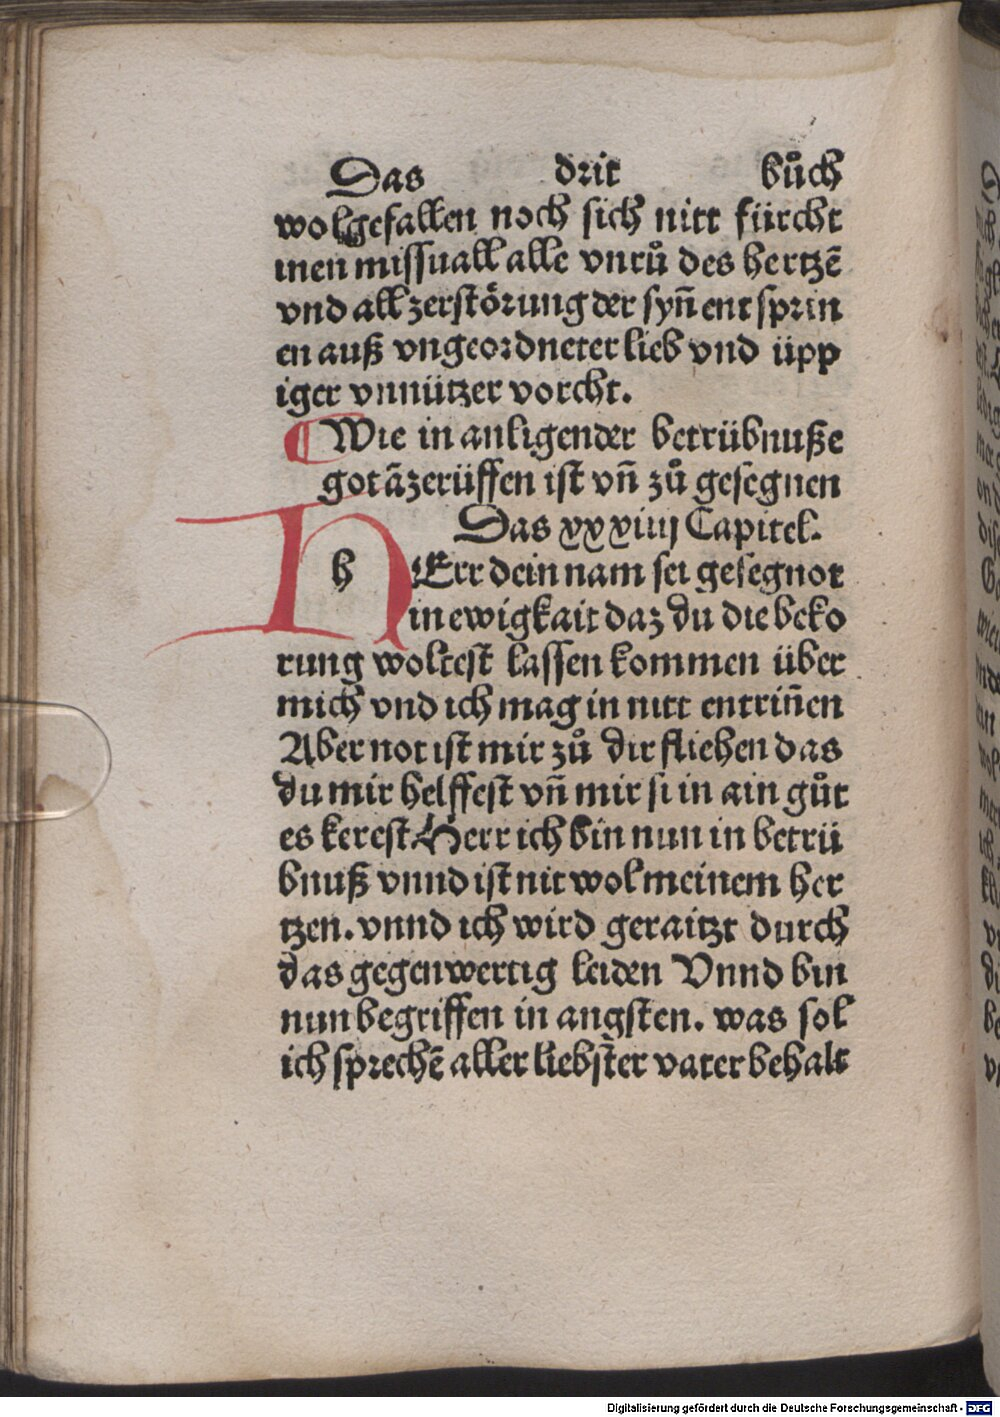 Das drit bůch
wolgefallen noch sich nitt fürcht
inen missuall alle vnrů des hertzē
vnd all zerstörung der syn̄ ent sprin
en auß vngeordneter lieb vnd üpp
iger vnnützer vorcht.
¶Wie in anligender betrübnuße
got āzerüffen ist vn̄ zů gesegnen
Das xxxiiij Capitel.
h Err dein nam sei gesegnot
in ewigkait daz du die beko
rung woltest lassen kommen über
mich vnd ich mag in nitt entrin̄en
Aber not ist mir zů dir fliehen das
du mir helffest vn̄ mir si in ain gůt
es kerest Herr ich bin nun in betrü
bnuß vnnd ist nit wol meinem her
tzen. vnnd ich wird geraitzt durch
das gegenwertig leiden Vnnd bin
nun begriffen in angsten. was sol
ich sprechē aller liebster vater behalt
Digitalisierung gefördert durch die Deutsche Forschungsgemeinschaft - DFG